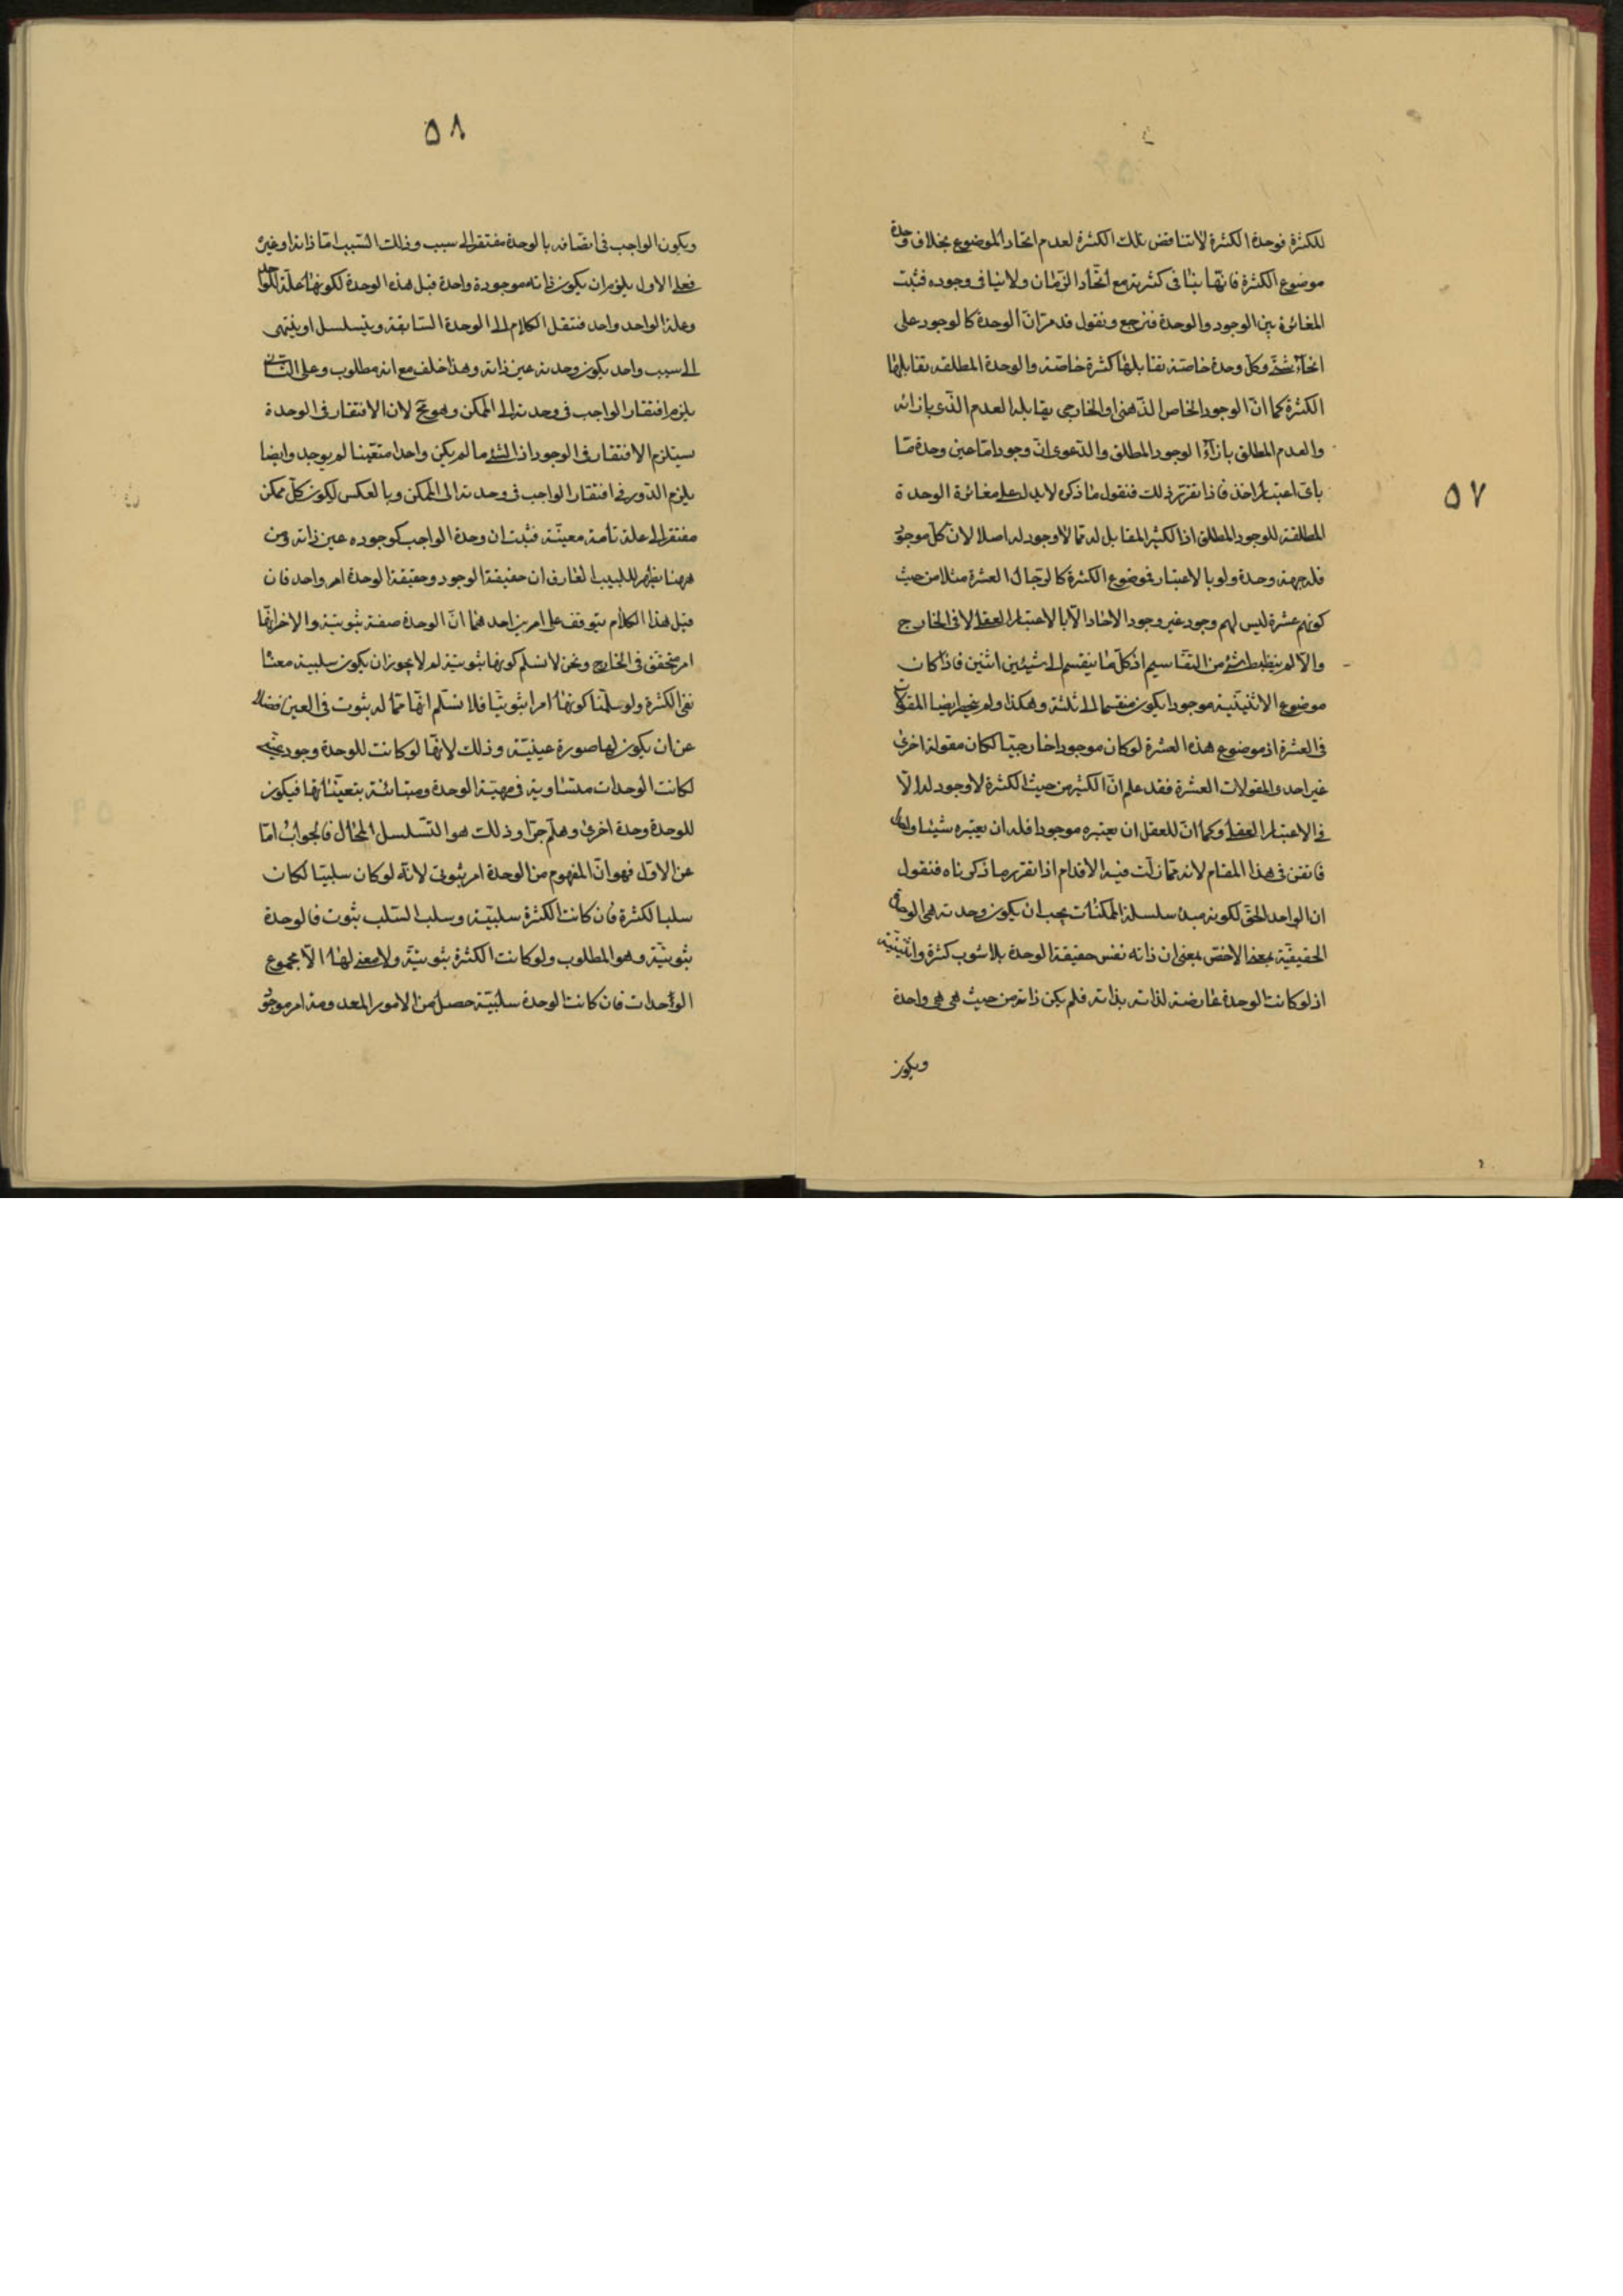 ٥٧
للكثرة فوحدة الكثرة لا تناقض تلك الكثرة لعدم اتحاد الموضوع بخلاف وحدة
موضوع الكثرة فانها ينافى كثرته مع اتحاد الزمان ولا ينافى وجوده فثبت
المغائرة بين الوجود والوحدة فنرجع ونقول قد مر ان الوحدة كالوجود على
انحاء شتى وكل وحدة خاصة تقابلها كثرة خاصة والوحدة المطلقة تقابلها
الكثرة كما ان الوجود الخاص الذهنى او الخارجى يقابله العدم الذى بازائه
والعدم المطلق بازاء الوجود المطلق والدعوى ان وجودا ما عين وحدة ما
باى اعتبار اخذ فاذا تقرر ذلك فنقول ما ذكره لا يدل على مغائرة الوحدة
المطلقة للوجود المطلق اذ الكثير المقابل له مما لا وجود له اصلا لان كل موجود
فله جهة وحدة ولو بالاعتبار فموضوع الكثرة كالرجال العشرة مثلا من حيث
كونهم عشرة ليس لهم وجود غير وجود الاحاد الا بالاعتبار العقلى لا فى الخارج
والا لم ينظبط شئ من التقاسيم اذ كل ما ينقسم الى شيئين اثنين فاذا كان
موضوع الاثنينية موجودا يكون منقسما الى ثلثة وهكذا ولم ينحصر ايضا المقولات
فى العشرة اذ موضوع هذه العشرة لو كان موجودا خارجيا لكان مقولة اخرى
غير احد المقولات العشرة فقد علم ان الكثير من حيث الكثرة لا وجود له الا
فى الاعتبار العقلى وكما ان للعقل ان يعتبره موجودا فله ان يعتبره شيئا واحدا
فاتقن فى هذا المقام لانه مما زلت فيه الاقدام اذا تقرر ما ذكرناه فنقول
ان الواحد الحق لكونه مبدء سلسلة الممكنات يجب ان يكون وحدته هى الوحدة
الحقيقية بمعنى الاخص بمعنى ان ذاته نفس حقيقة الوحدة بلا شوب كثرة واثنينية
اذ لو كانت الوحدة عارضة لذاته بذاته فلم يكن ذاته من حيث هى هى واحدة
ويكون
٥٨
ويكون الواجب فى اتصافه بالوحدة مفتقرا الى سبب وذلك السبب اما ذاته او غيره
فعلى الاول يلزم ان يكون ذاته موجودة واحدة قبل هذه الوحدة لكونها علة للواحد
وعلة الواحد واحد فننقل الكلام الى الوحدة السابقة ويتسلسل او ينتهى
الى سبب واحد يكون وحدته عين ذاته وهذا خلف مع انه مطلوب وعلى الثانى
يلزم افتقار الواجب فى وحدته الى الممكن وهو مح لان الافتقار فى الوحدة
يستلزم الافتقار فى الوجود اذ الشئ ما لم يكن واحدا متعينا لم يوجد وايضا
يلزم الدور فى افتقار الواجب فى وحدته الى الممكن وبالعكس ليكون كل ممكن
مفتقرا الى علة تامة معينة فثبت ان وحدة الواجب كوجوده عين ذاته ومن
ههنا يظهر للبيب العارف ان حقيقة الوجود وحقيقة الوحدة امر واحد فان
قيل هذا الكلام يتوقف على امرين احدهما ان الوحدة صفة ثبوتية والاخر انها
امر متحقق فى الخارج ونحن لا نسلم كونها ثبوتية لم لا يجوز ان يكون سلبية معناها
نفى الكثرة ولو سلمنا كونها امرا ثبوتيا فلا نسلم انها مما له ثبوت فى العين فضلا
عن ان يكون لها صورة عينية وذلك لانها لو كانت للوحدة وجود عينى
لكانت الوحدات متساوية فى مهية الوحدة ومتبائنة بتعيناتها فيكون
للوحدة وحدة اخرى وهلم جرا وذلك هو التسلسل المحال فالجواب اما
عن الاول فهو ان المفهوم من الوحدة امر ثبوتى لانه لو كان سلبيا لكان
سلبا لكثرة فان كانت الكثرة سلبية وسلب السلب ثبوت فالوحدة
ثبوتية وهو المطلوب ولو كانت الكثرة ثبوتية ولا معنى لها الا مجموع
الواحدات فان كانت الوحدة سلبية حصل من الامور المعدومة امر موجود